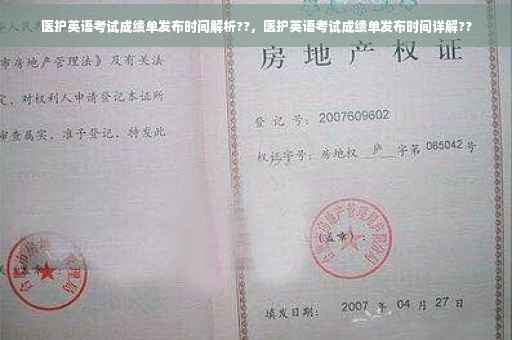 医护英语考试成绩单发布时间解析??，医护英语考试成绩单发布时间详解??
市房地产管理法》及有关法
定，对权利人申请登记本证所
审查属实，准予登记，特发此
房地产权证
登记号：2007609602
权证字号：房地权 庐 字第 085042 号
(盖章)：
填发日期： 2007 年 04 月 27 日